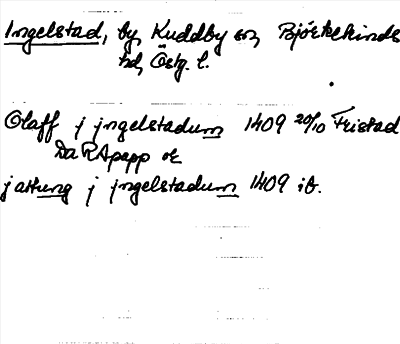 Ingelstad, by, Kuddby sn, Björkekinds
hd, Östg. l.
Olaff j jngelstadum 1409 20/10 Fristad
DaRApapp or
jattung j jngelstadum 1409 ib.